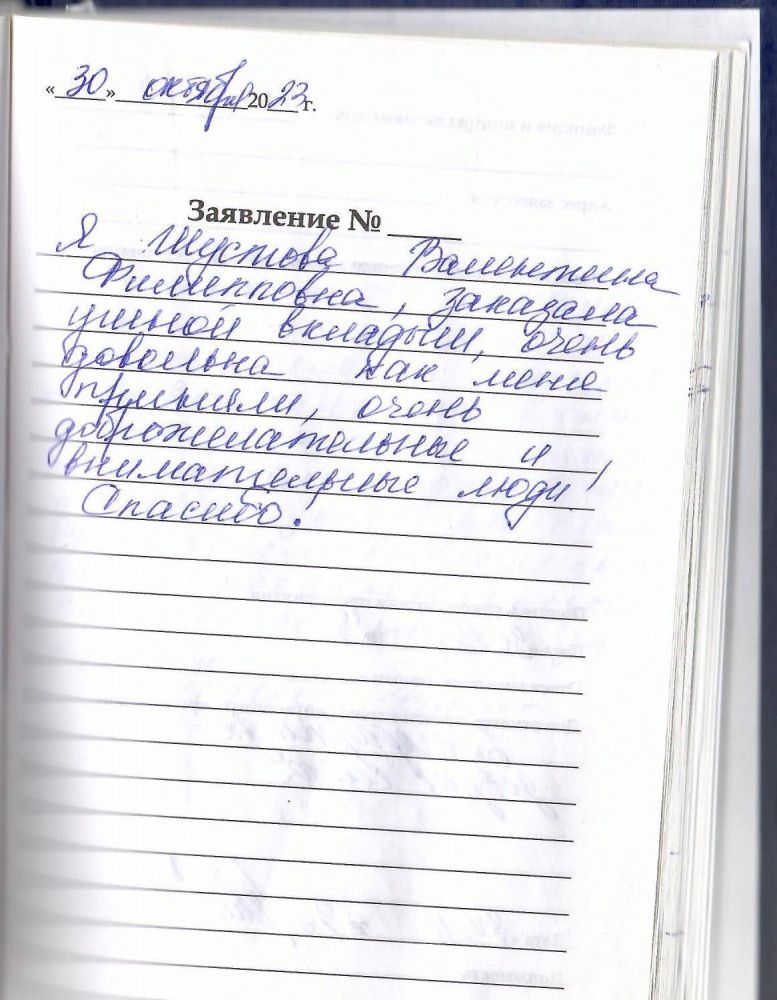 « 30 » октября 2023 г.
Заявление № ____
Я Шустова Валентина
Филипповна, заказала
ушной вкладыш, очень
довольна как меня
приняли, очень
доброжелательные и
внимательные люди!
Спасибо!